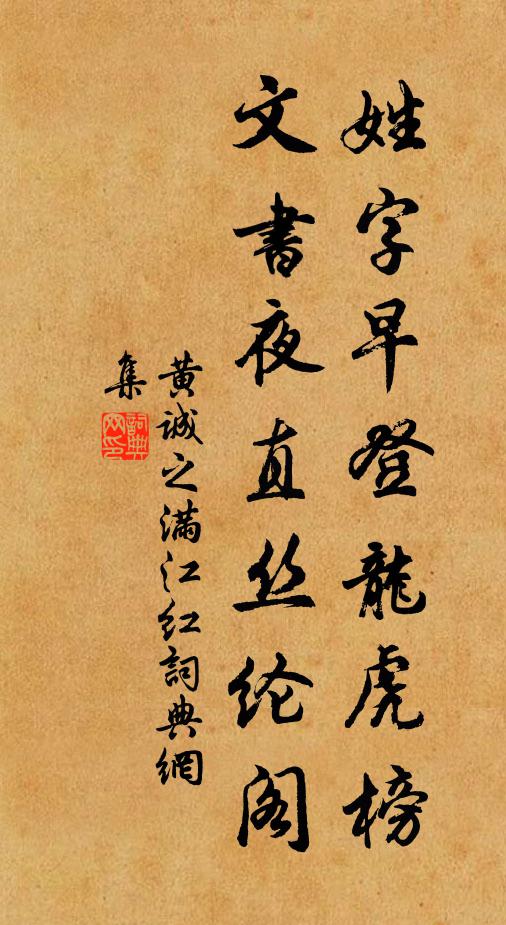 姓字早登龍虎榜
文書夜直丝纶阁
黄诚之满江红詞典網
集
詞典网印